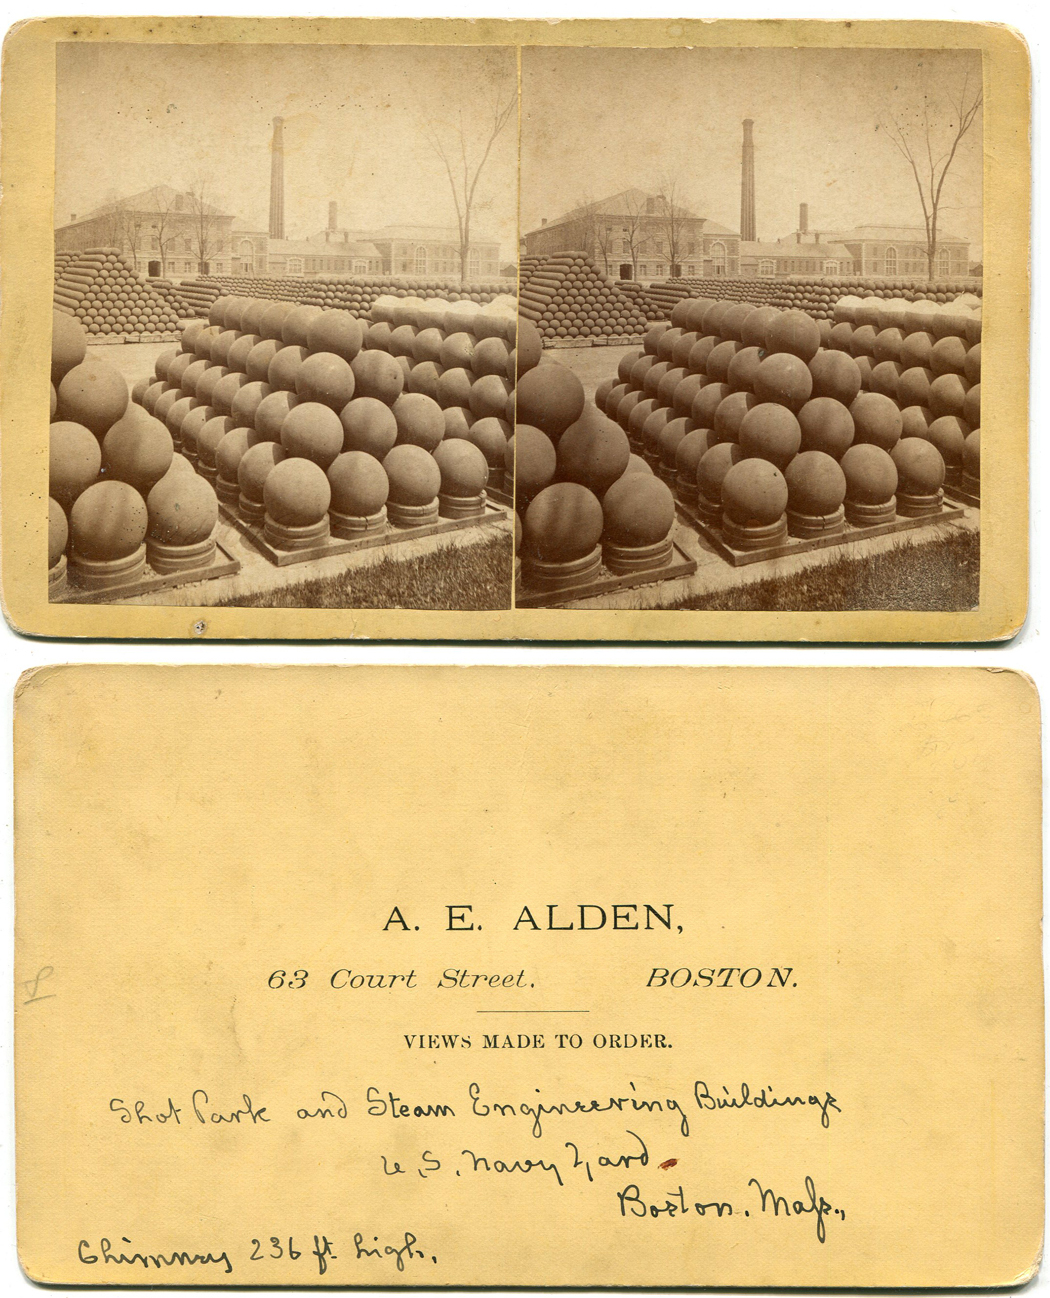 A. E. ALDEN,
63 Court Street. BOSTON.
VIEWS MADE TO ORDER.
Shot Park and Steam Engineering Buildings
U.S. Navy Yard
Boston. Maſs.,
Chimney 236 ft high.